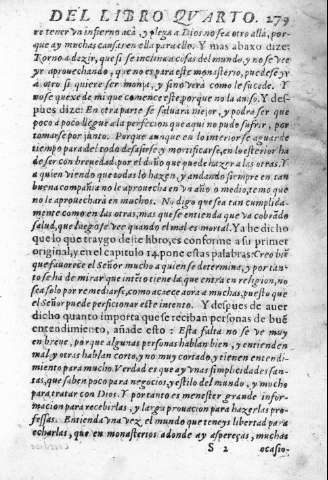 DEL LIBRO QVARTO. 279
re tener vn infierno acà, y plega a Dios no sea otro allà, por-
que ay muchas causas en ella para ello. Y mas abaxo dize:
Torno a dezir, que si se inclina a cosas del mundo, y no se vee
yr aprouechando, que no es para este monasterio, puedese yr
a otro si quiere ser monja, y sino verà como le sucede. Y
no se quexe de mi que comence este, porque no la auiso. Y des-
pues dize: En otra parte se saluarà mejor, y podrà ser que
poco a poco llegue a la perfeccion que aqui no pudo sufrir, por
tomarse por junto. Porque aunque en lo interior se aguarde
tiempo para del todo desasirse, y mortificarse, en lo exterior ha
de ser con breuedad, por el daño que puede hazer a las otras. Y
a quien viendo que todas lo hazen, y andando siempre en tan
buena compañia no le aprouecha en vn año o medio, temo que
no le aprouecharà en muchos. No digo que sea tan cumplida-
mente como en las otras, mas que se entienda que va cobrãdo
salud, que luego se vee quando el mal es mortal. Ya he dicho
que lo que traygo deste libro, es conforme a su primer
original, y en el capitulo 14. pone estas palabras: Creo biẽ
que fauorece el Señor mucho a quien se determina, y por tan-
to se ha de mirar que intẽto tiene la que entra en religion, no
sea solo por remediarse, como acaece aora a muchas, puesto que
el Señor puede perficionar este intento. Y despues de auer
dicho quanto importa que se reciban personas de buẽ
entendimiento, añade esto: Esta falta no se ve muy
en breue, porque algunas personas hablan bien, y entienden
mal, y otras hablan corto, y no muy cortado, y tienen entendi-
miento para mucho. Verdad es que ay vnas simplicidades san-
tas, que saben poco para negocios, y estilo del mundo, y mucho
para tratar con Dios. Y por tanto es menester grande infor-
macion para recibirlas, y larga prouacion para hazerlas pro-
fessas. Entienda vna vez el mundo que teneys libertad para
echarlas, que en monasterios adonde ay asperezas, muchas
S 2 ocasio-